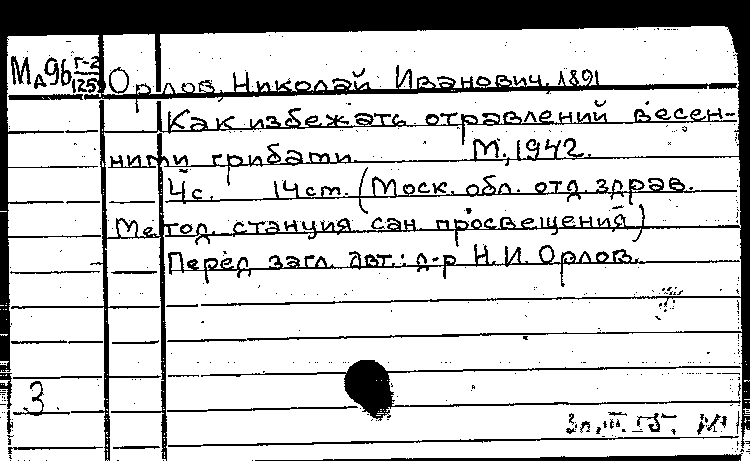 Мд96 Г-2/125 Орлов, Николай Иванович, 1891
Как избежать отравлений весен-
ними грибами. М., 1942.
4с. 14см. (Моск. обл. отд. здрав.
Метод. станция сан. просвещения)
Перед загл. авт.: д-р Н.И. Орлов.
3